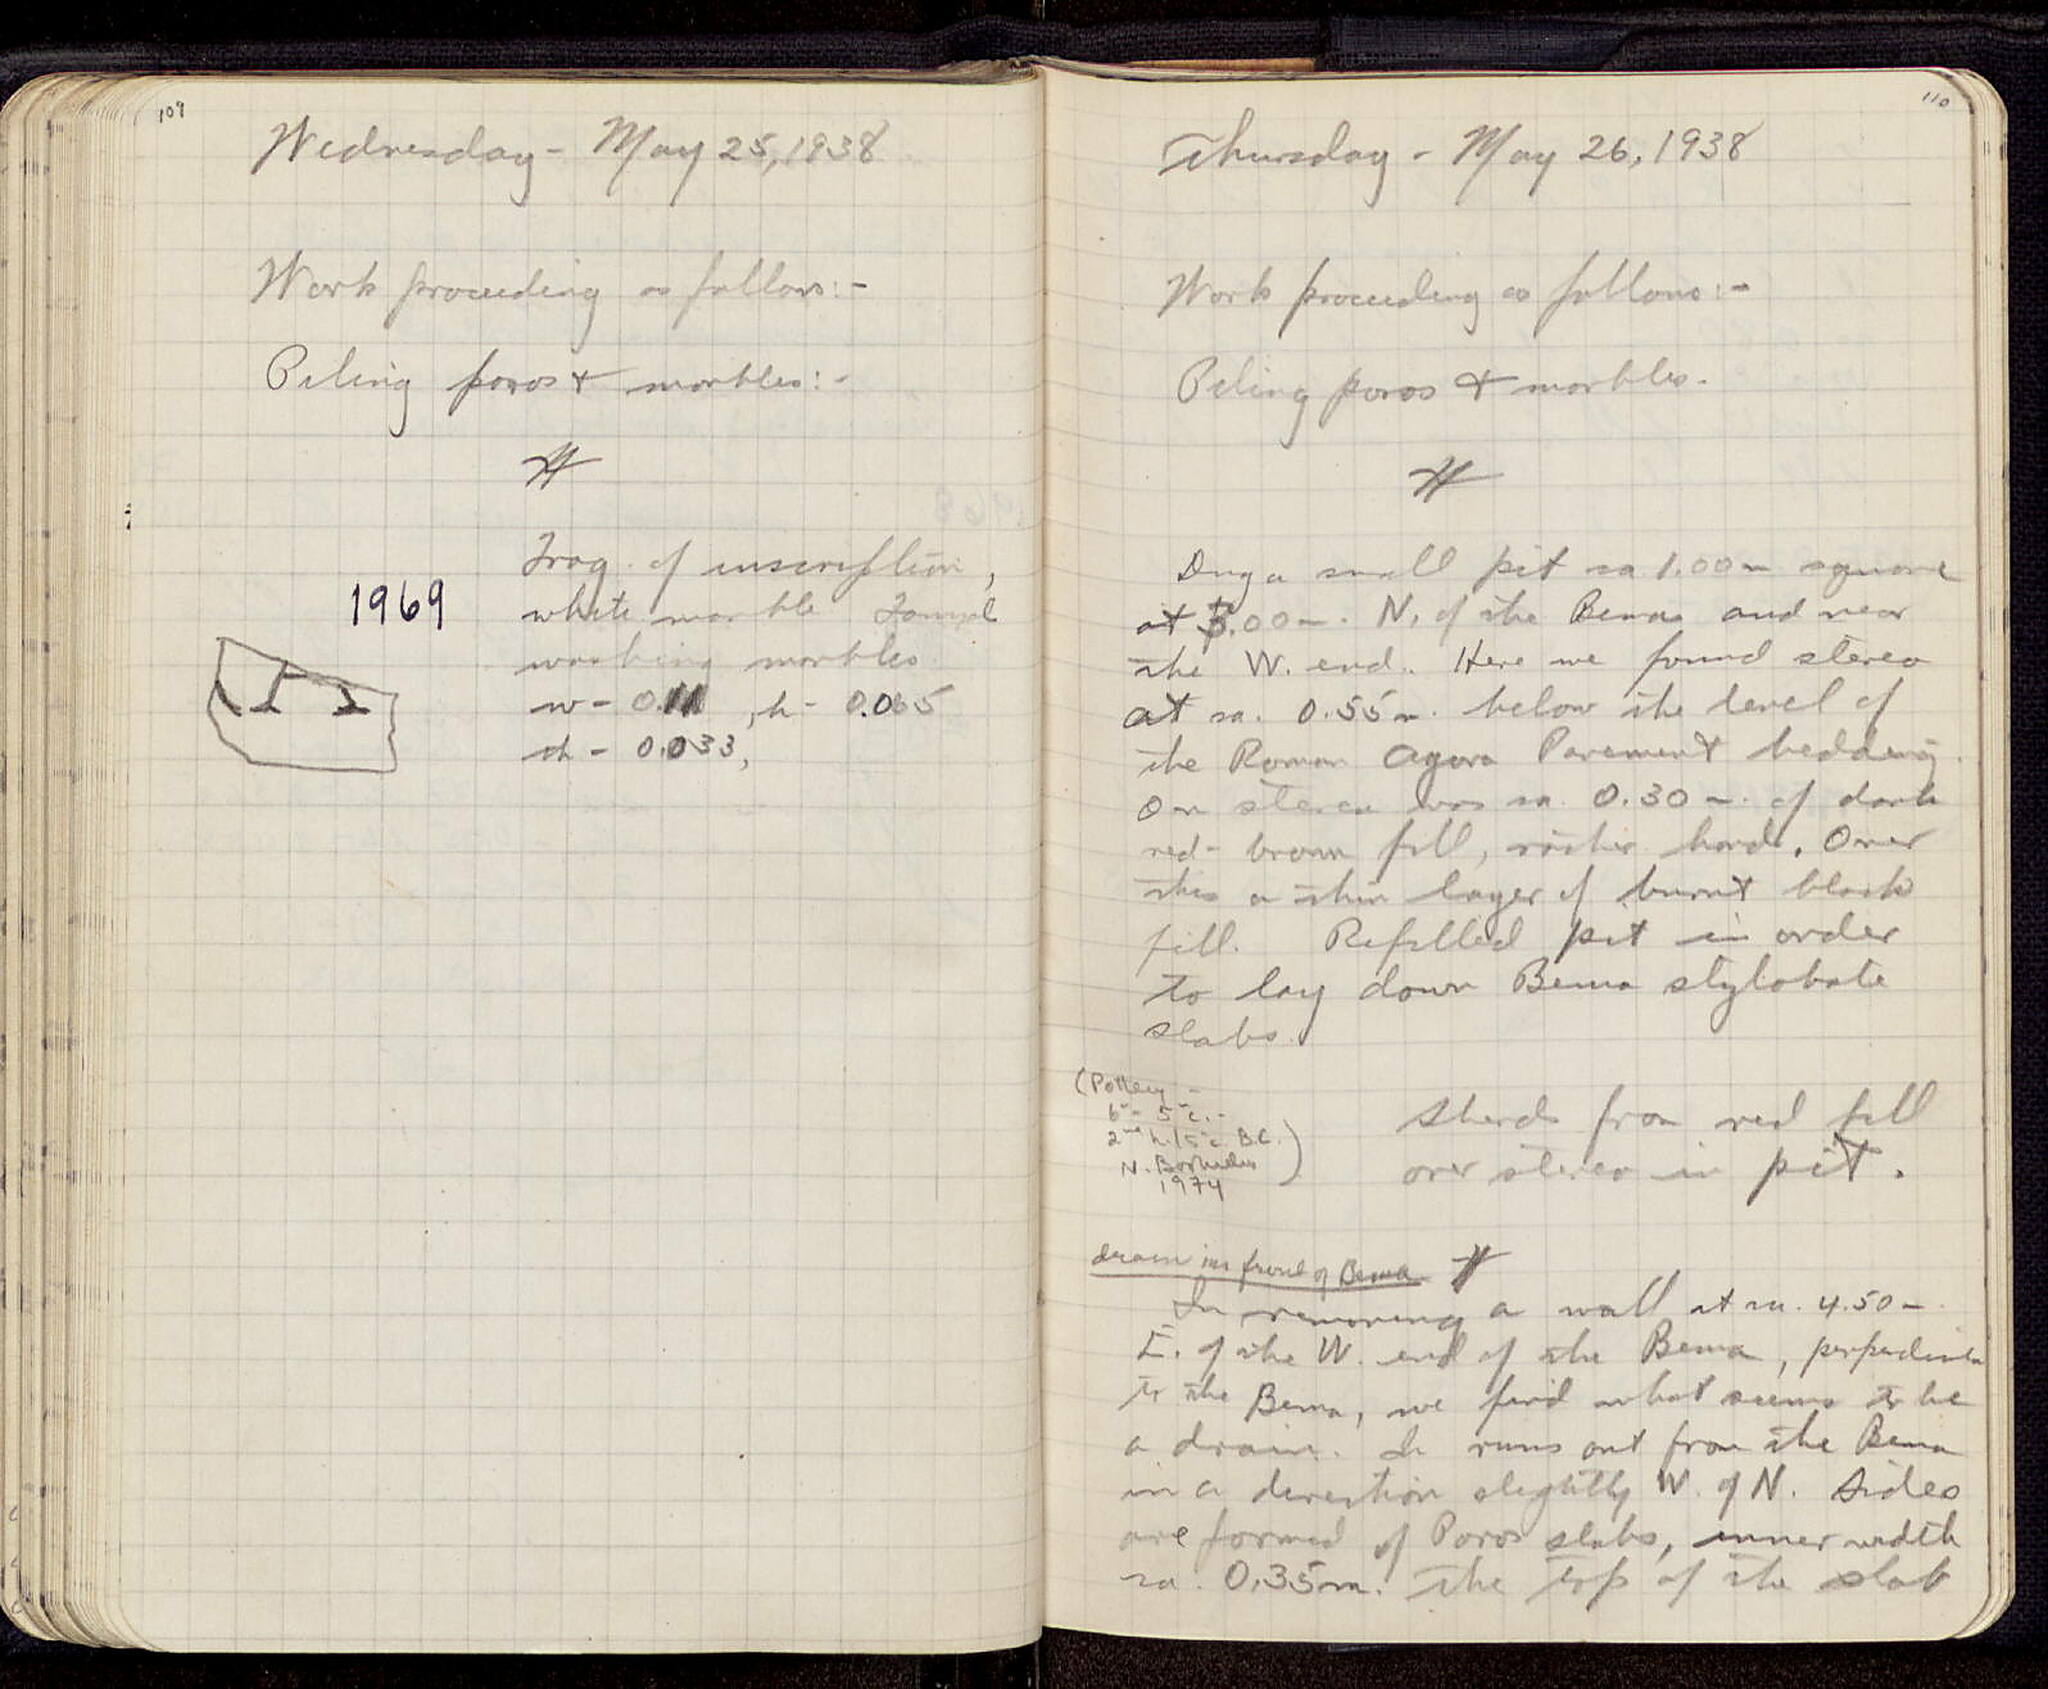 109
Wednesday - May 25, 1938
Work proceeding as follows:-
Piling poros & marbles:-
Frag. of inscription,
1969
white marble Found
washing marbles
w - 0.11, h - 0.065
th - 0.033,
110
Thursday - May 26, 1938
Work proceeding as follows:-
Piling poros & marbles.
Dug a small pit ca 1.00m square
at 3.00m. N. of the Bema and near
the W. end. Here we found stereo
at ca. 0.55m. below the level of
the Roman Agora Pavement bedding.
On stereo was ca. 0.30m. of dark
red-brown fill, rather hard. Over
this a thin layer of burnt black
fill. Refilled pit in order
to lay down Bema stylobate
slabs.
(Pottery -
6 - 5 c. -
2nd h./5 c B.C.
N. Bookidis
1974)
Sherds from red fill
over stereo in pit.
drain in front of Bema
In removing a wall at ca. 4.50m.
E. of the W. end of the Bema, perpendicular
to the Bema, we find what seems to be
a drain. It runs out from the Bema
in a direction slightly W. of N. Sides
are formed of Poros slabs, inner width
ca. 0.35m. The top of the slab